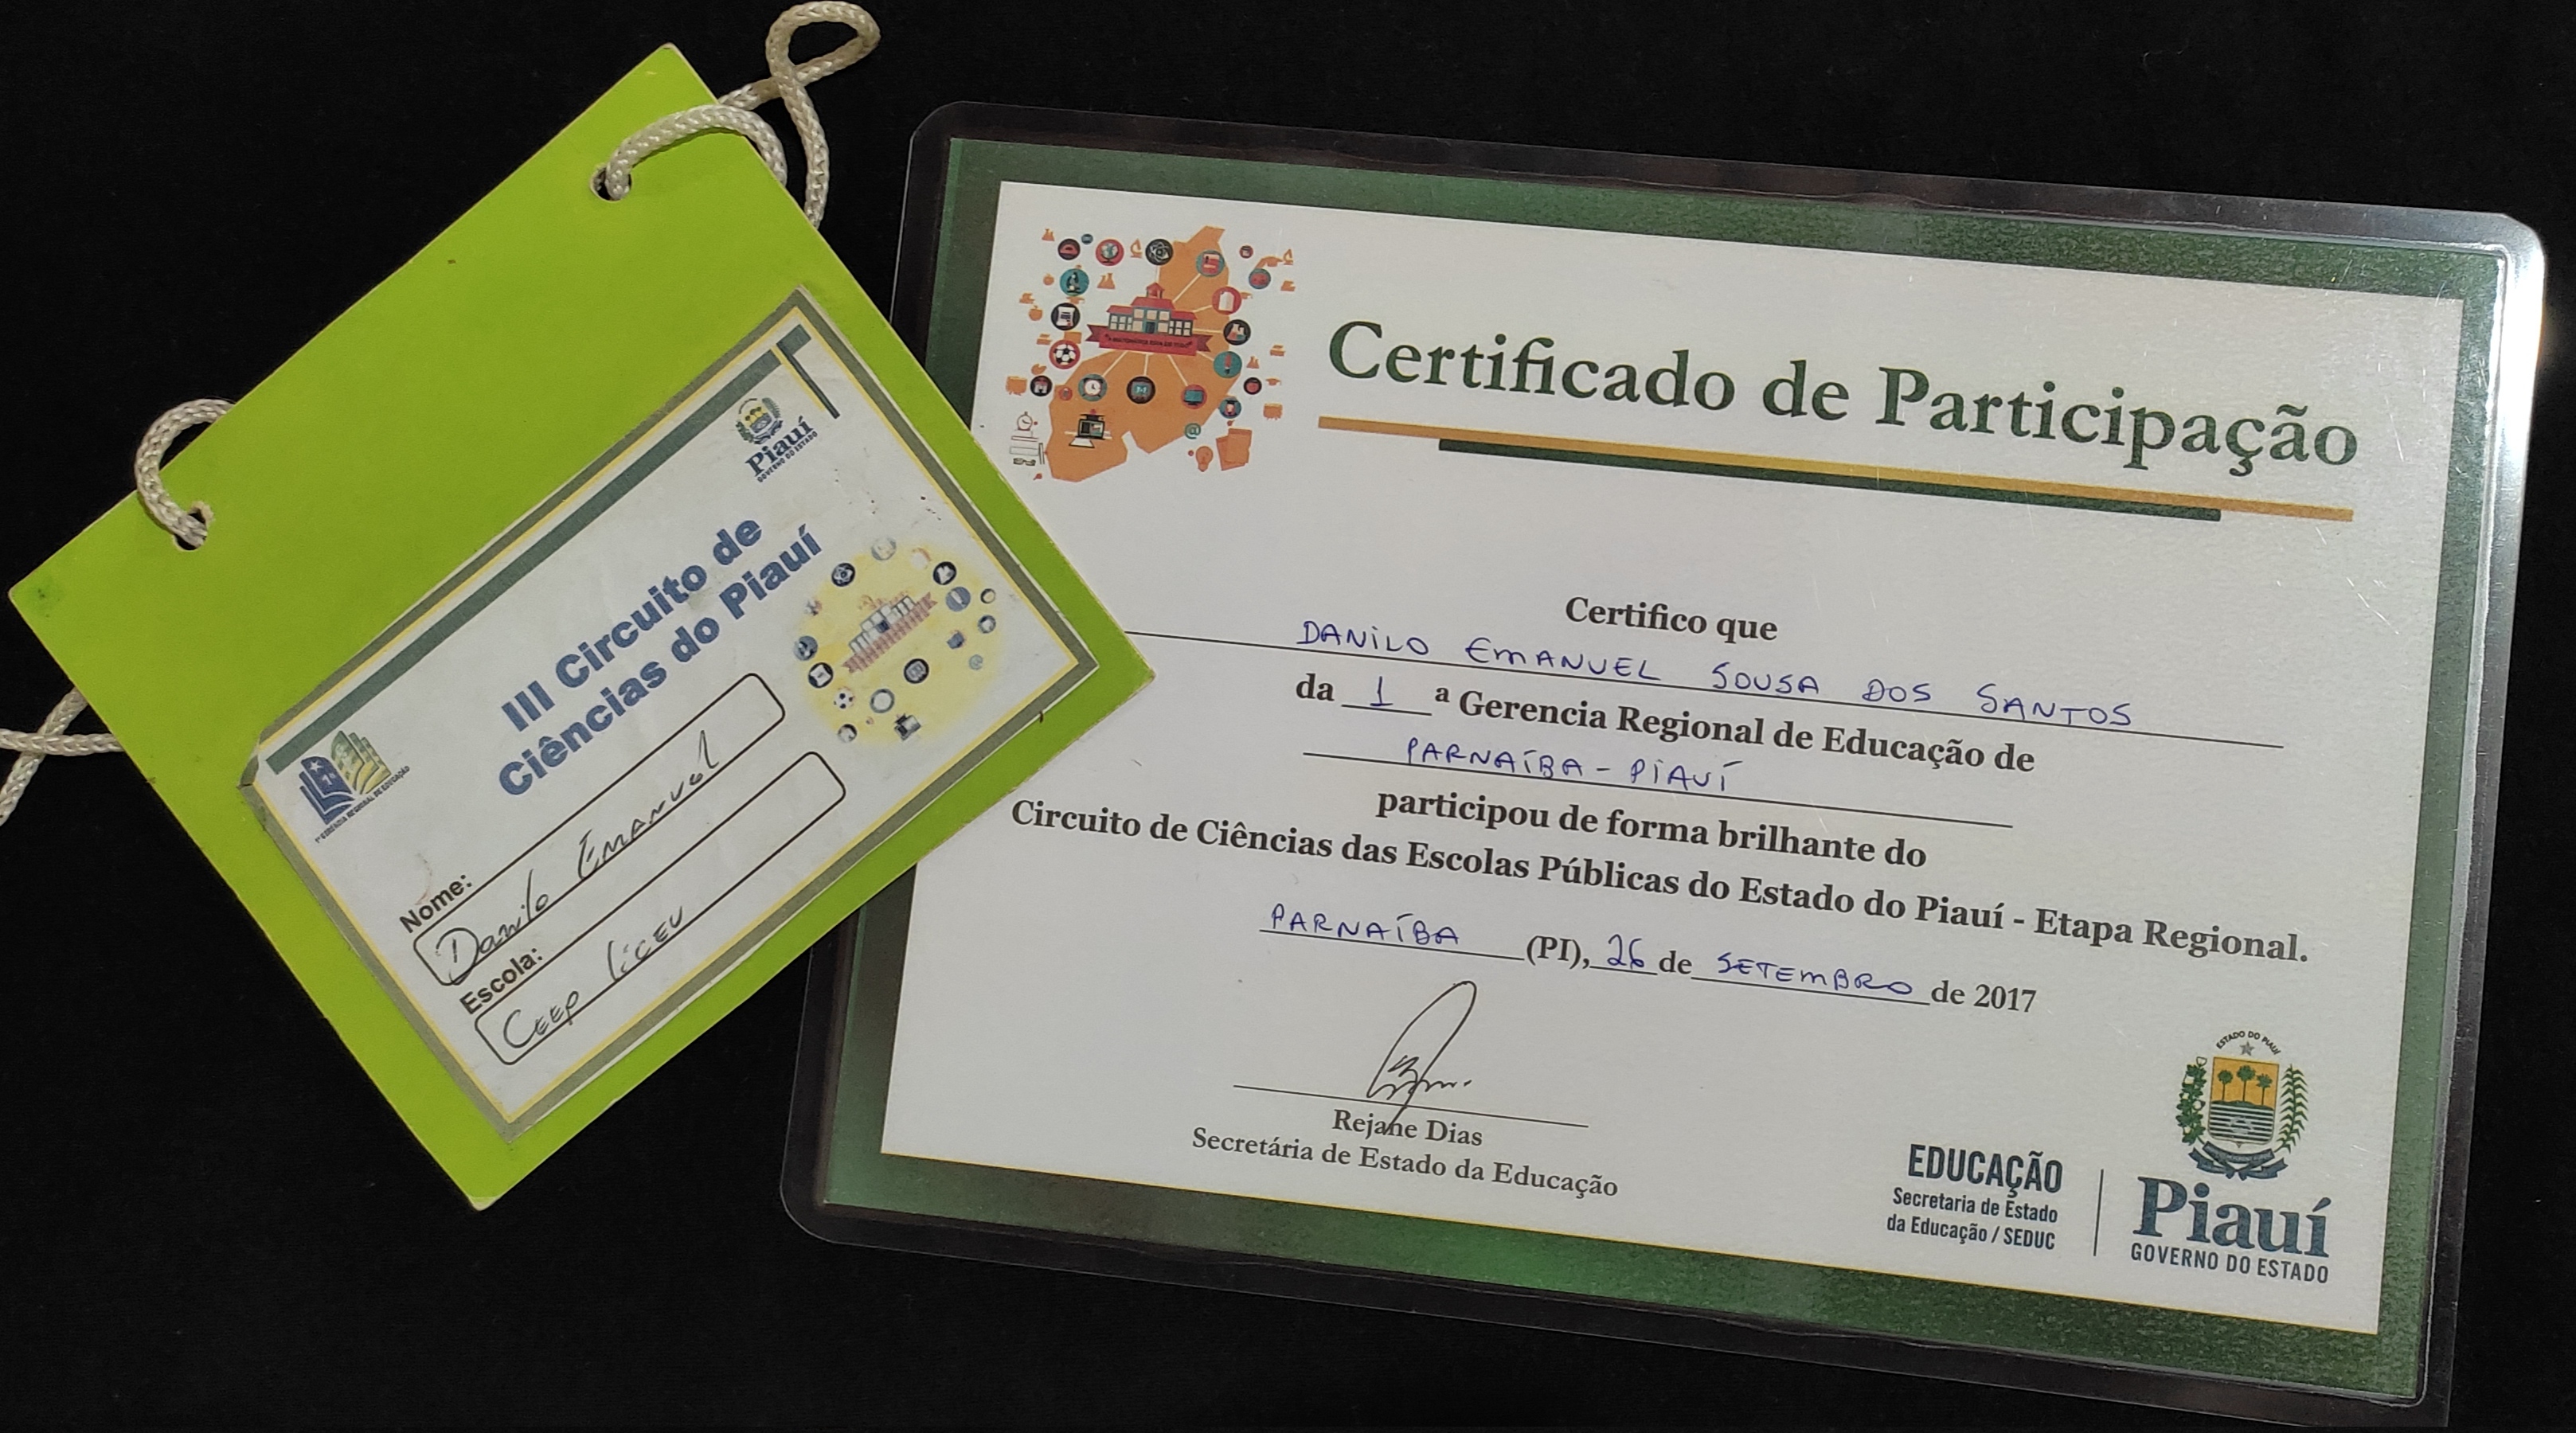 Piauí
GOVERNO DO ESTADO
III Circuito de
Ciências do Piauí
1ª GERÊNCIA REGIONAL DE EDUCAÇÃO
Nome:
Danilo Emanuel
Escola:
Ceep liceu
Certificado de Participação
Certifico que
DANILO EMANUEL SOUSA DOS SANTOS
da 1 ª Gerencia Regional de Educação de
PARNAÍBA - PIAUÍ
participou de forma brilhante do
Circuito de Ciências das Escolas Públicas do Estado do Piauí - Etapa Regional.
PARNAÍBA (PI), 26 de SETEMBRO de 2017
Rejane Dias
Secretária de Estado da Educação
EDUCAÇÃO
Secretaria de Estado
da Educação / SEDUC
ESTADO DO PIAUÍ
Piauí
GOVERNO DO ESTADO